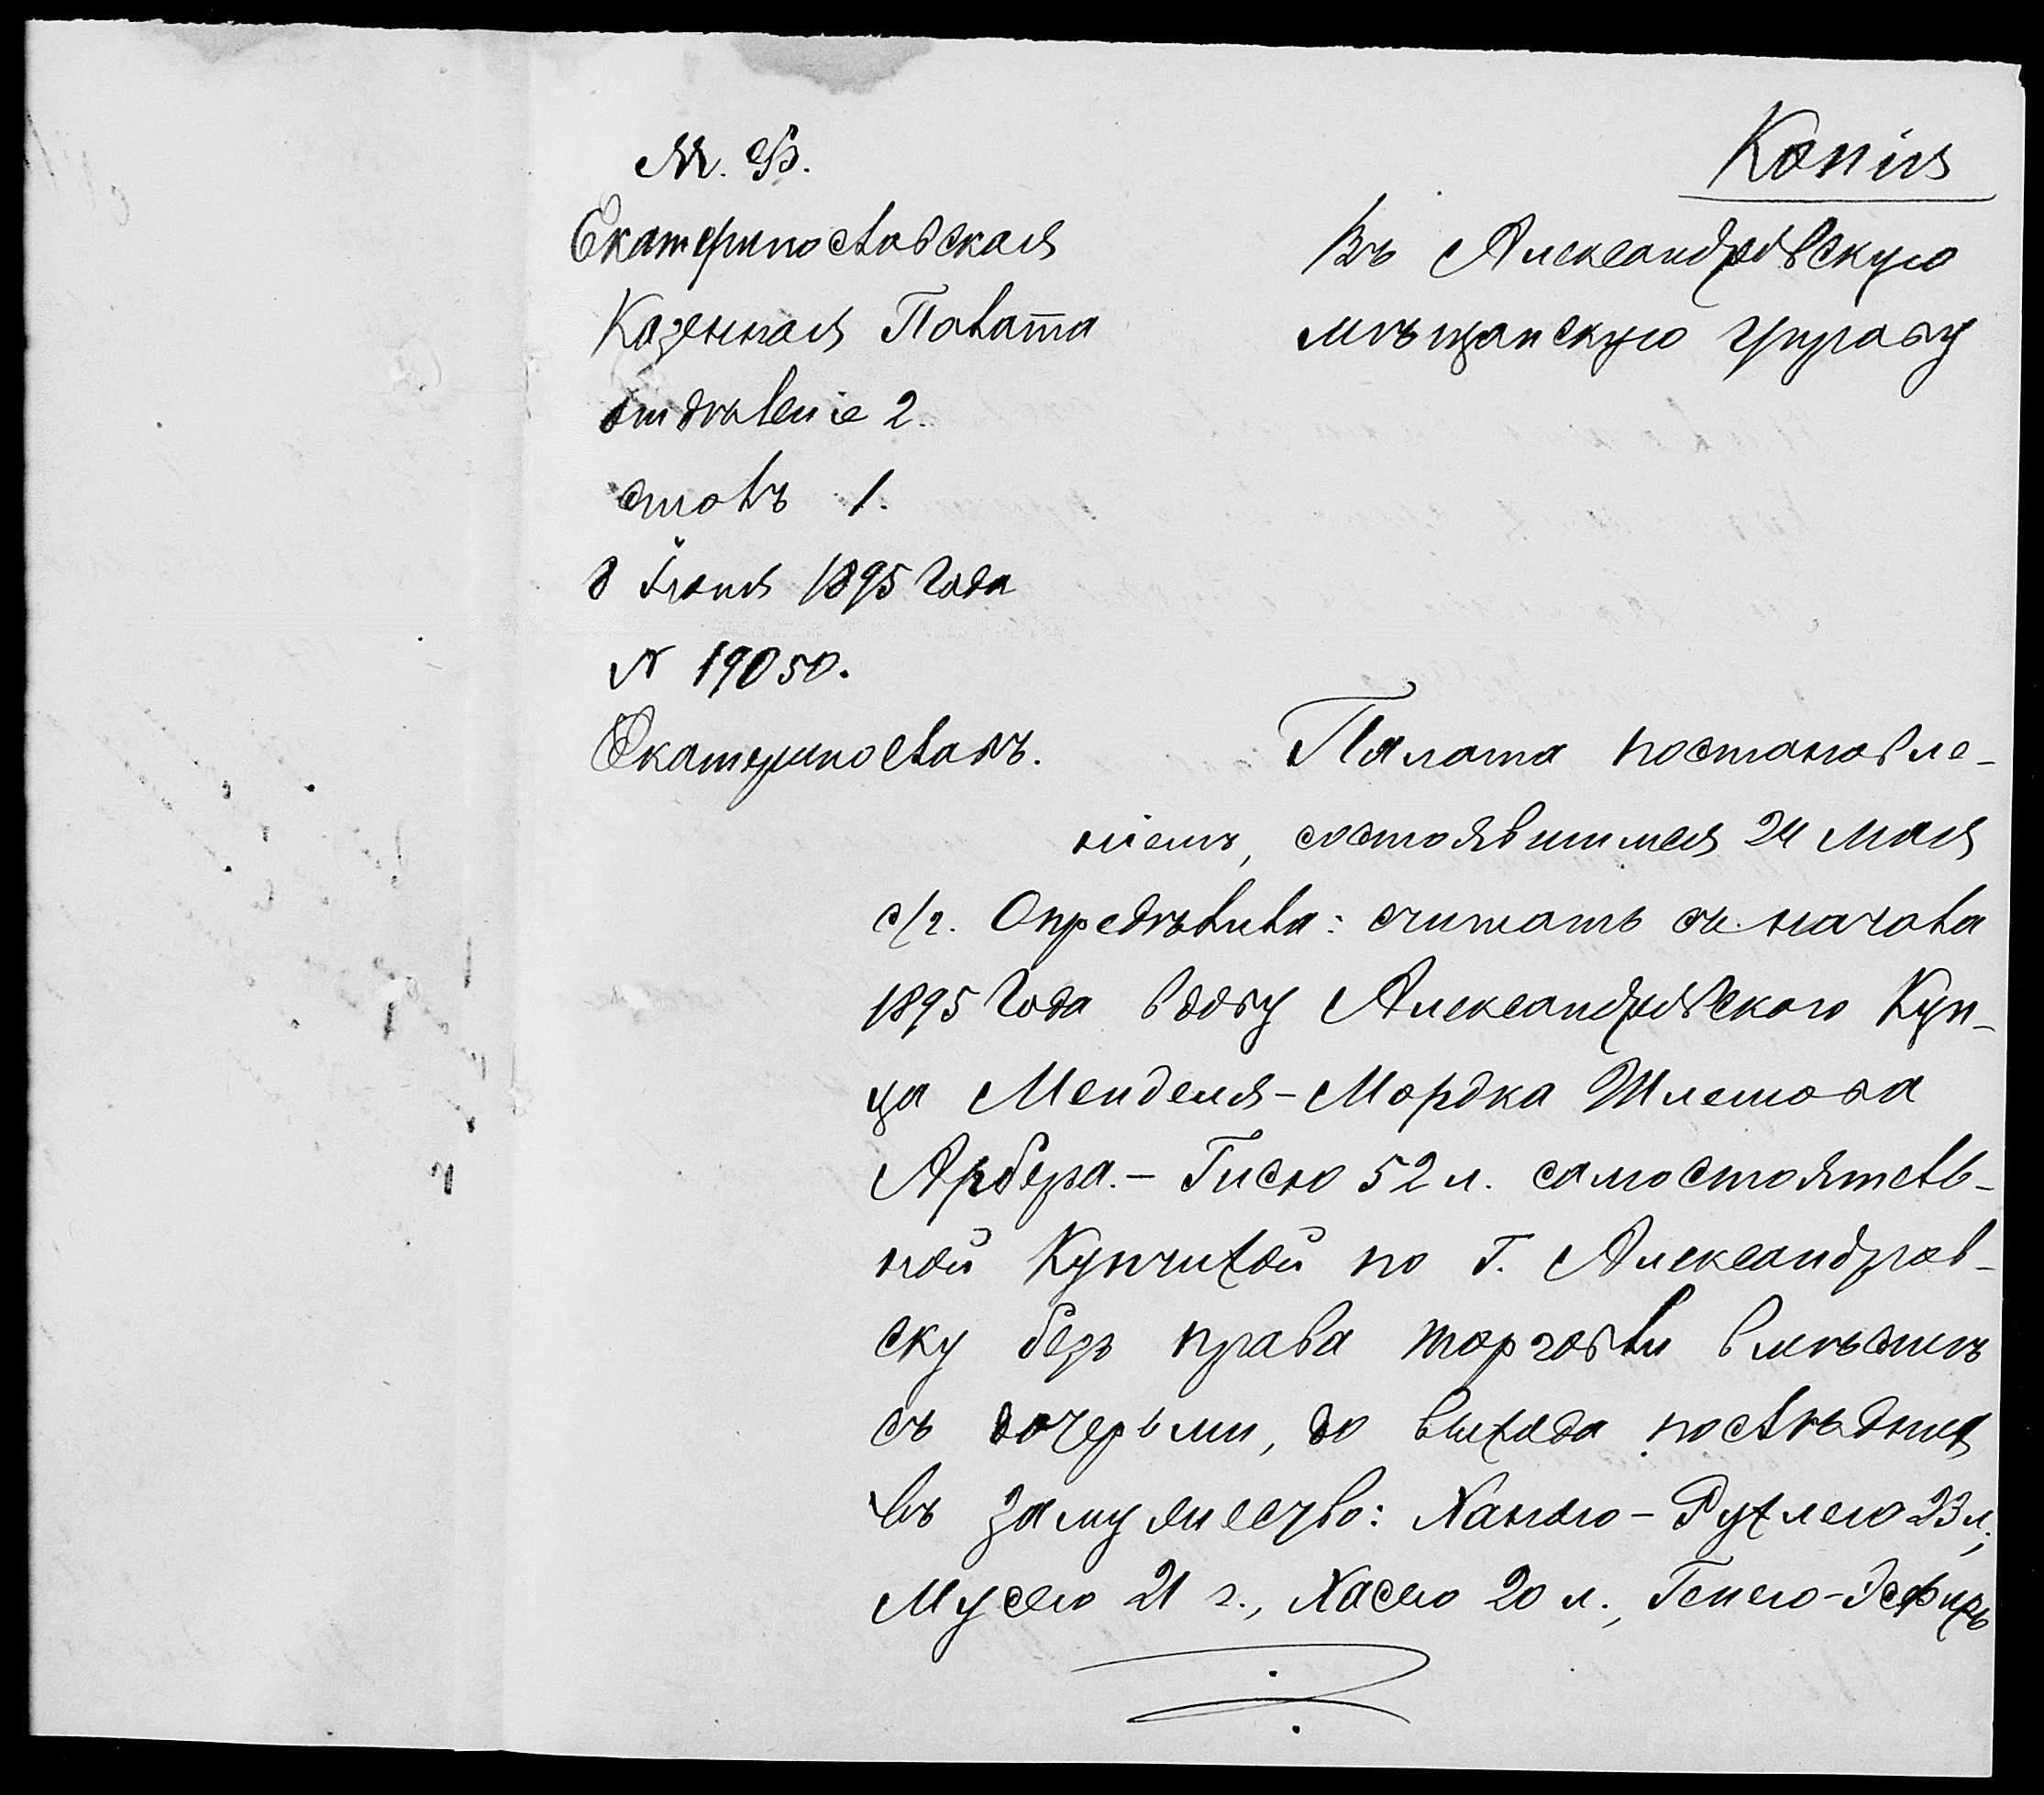 Копія
М. Ф.
Екатеринославская
Казенная Палата
отдѣленіе 2.
столъ 1.
8 Іюня 1895 года
N 19050.
Екатеринославъ.
Въ Александровскую
мѣщанскую управу
Палата постановле-
ніемъ, состоявшимся 24 Мая
с/г. Опредѣлила: считать съ начала
1895 года вдову Александровскаго Куп-
ца Менделя-Мордка Шлемова
Арбера. - Гисю 52 л. самостоятель-
ной Купчихой по г. Александров-
ску безъ права торговли вмѣстѣ
съ дочерьми, до выхода послѣднихъ
въ замужество: Ханью-Рухлею 23 л.,
Мусею 21 г., Хасею 20 л., Генею-Эсфирь